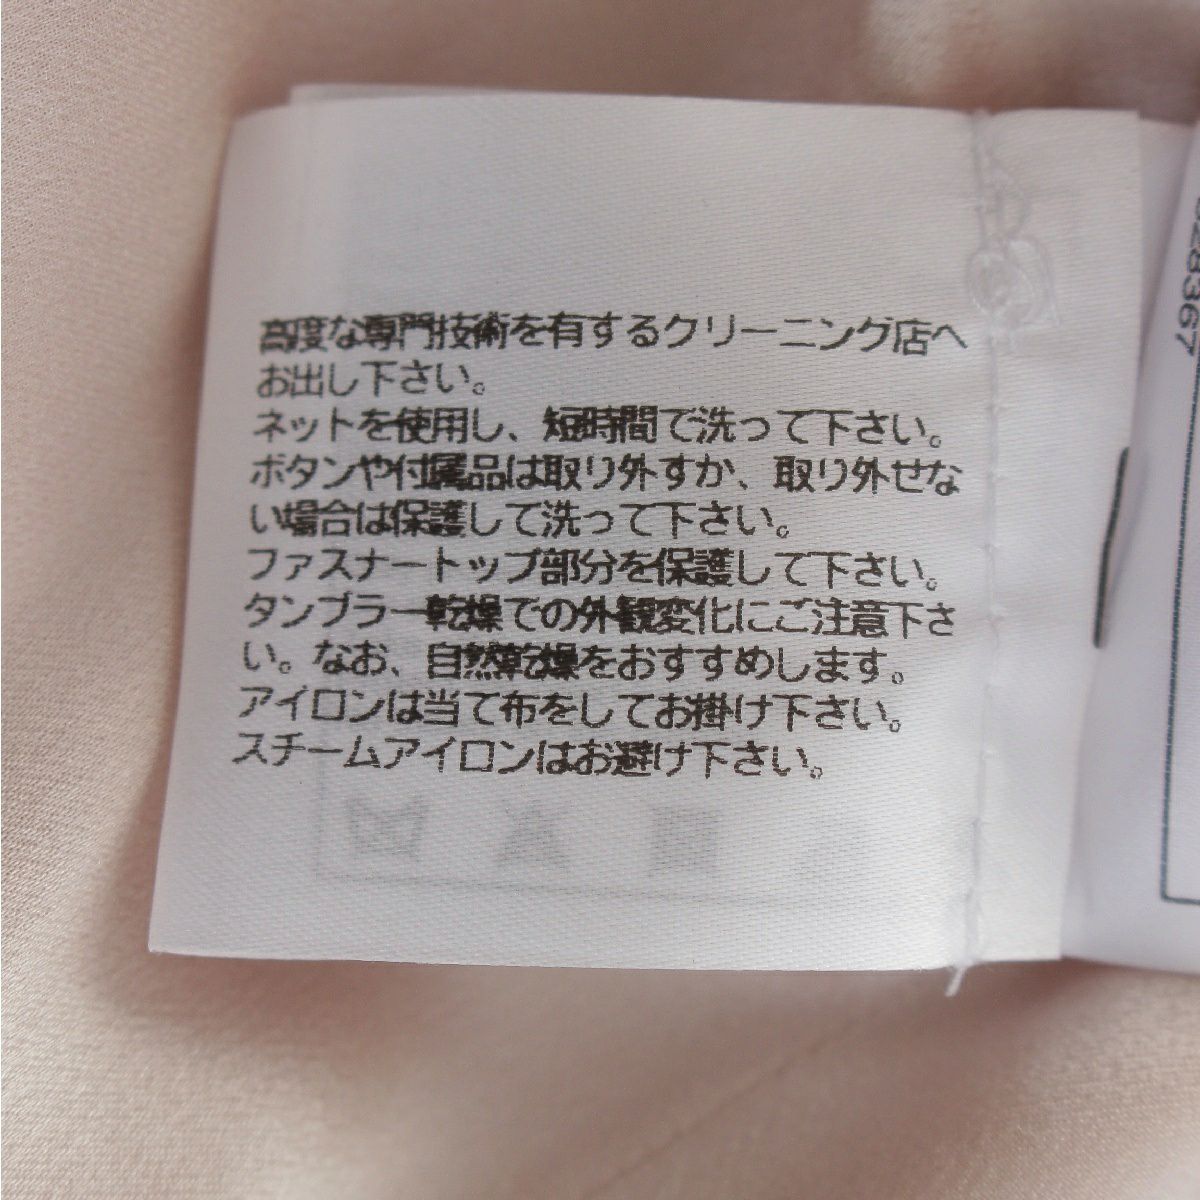 高度な専門技術を有するクリーニング店へ
お出し下さい。
ネットを使用し、短時間で洗って下さい。
ボタンや付属品は取り外すか、取り外せな
い場合は保護して洗って下さい。
ファスナートップ部分を保護して下さい。
タンブラー乾燥での外観変化にご注意下さ
い。なお、自然乾燥をおすすめします。
アイロンは当て布をしてお掛け下さい。
スチームアイロンはお避け下さい。
28367